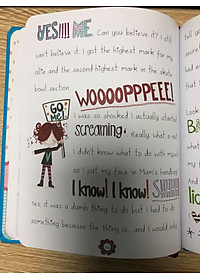 YES!!!! ME. Can you believe it? I still
can't believe it. I got the highest mark for my
ollie and the second-highest mark in the skate
bowl section. WOOOOPPPEEE!
GO ME!
I was so shocked I actually started
screaming. Really. What a nut
I didn't know what to do with myself
so I put my face in Mum's handbag
I know! I know! SHHHH!
Yes, it was a dumb thing to do but I had to do
something because the thing is... and I would only